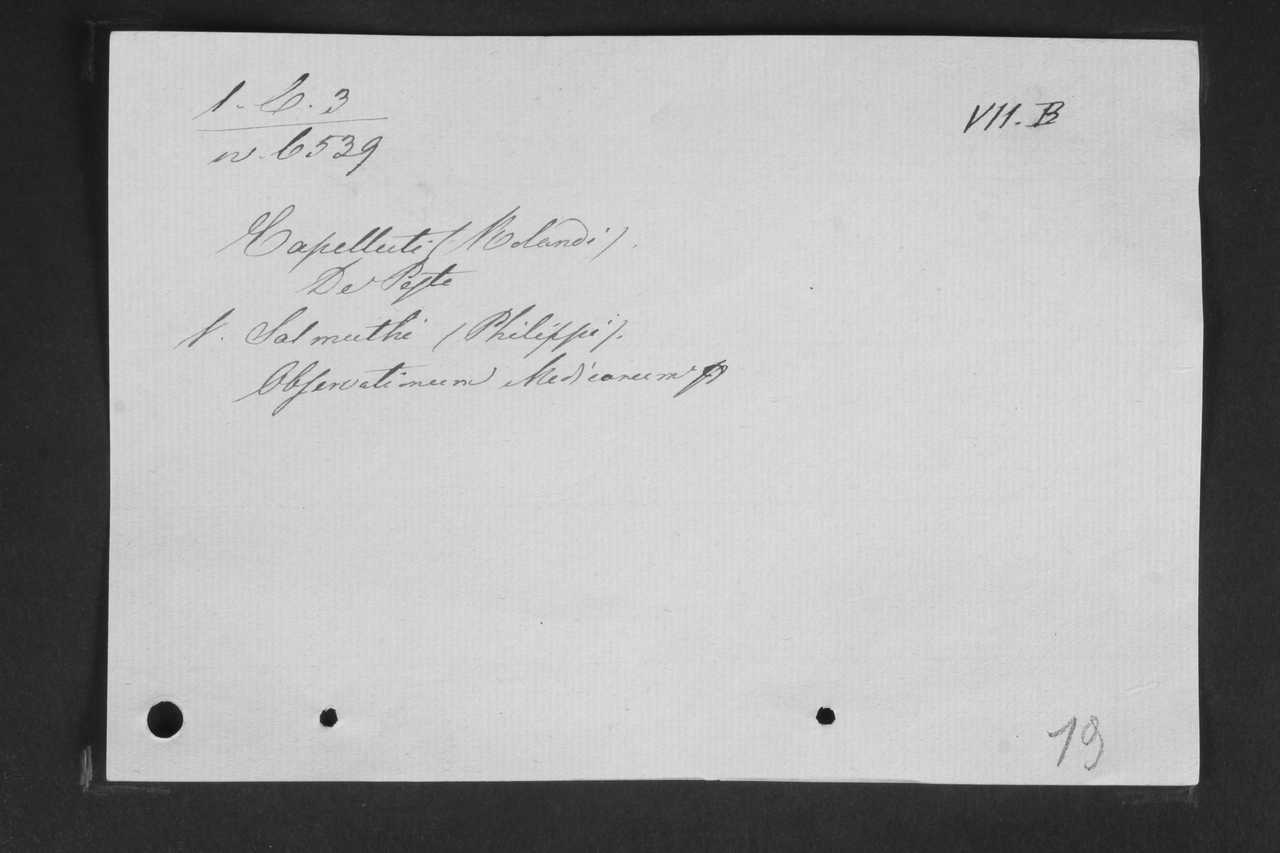 1. C. 3
VII. B
n. 6539
Capelluti (Rolandi).
De Peste
V. Salmuthi (Philippi).
Observationum Medicarum
19